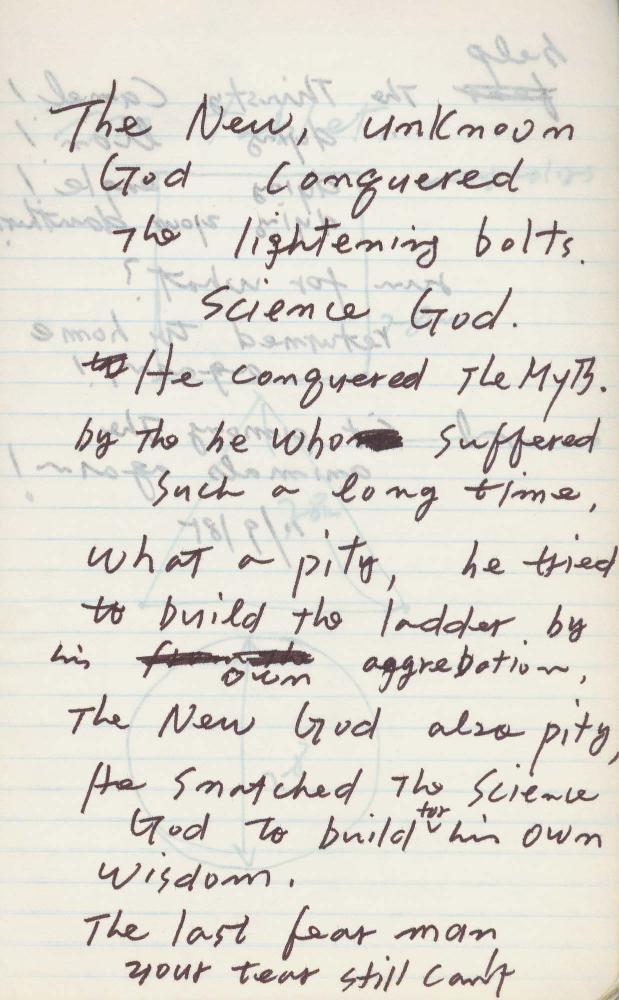 The New, unknown
God Conquered
The lightening bolts.
Science God.
He conquered The Myth.
by the he who suffered
Such a long time,
What a pity, he tried
to build the ladder by
his own aggrebation,
The New God also pity,
He snatched The Science
God To build for his own
Wisdom.
The last fear man
your tear still can't